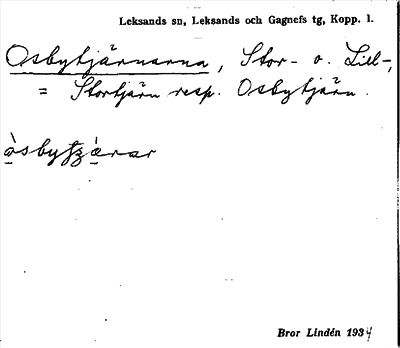 Leksands sn, Leksands och Gagnefs tg, Kopp. l.
Osbytjärnarna, Stor- o. Lill-,
= Stortjärn resp. Osbytjärn.
òsbytʒ̀ärar
Bror Lindén 1934